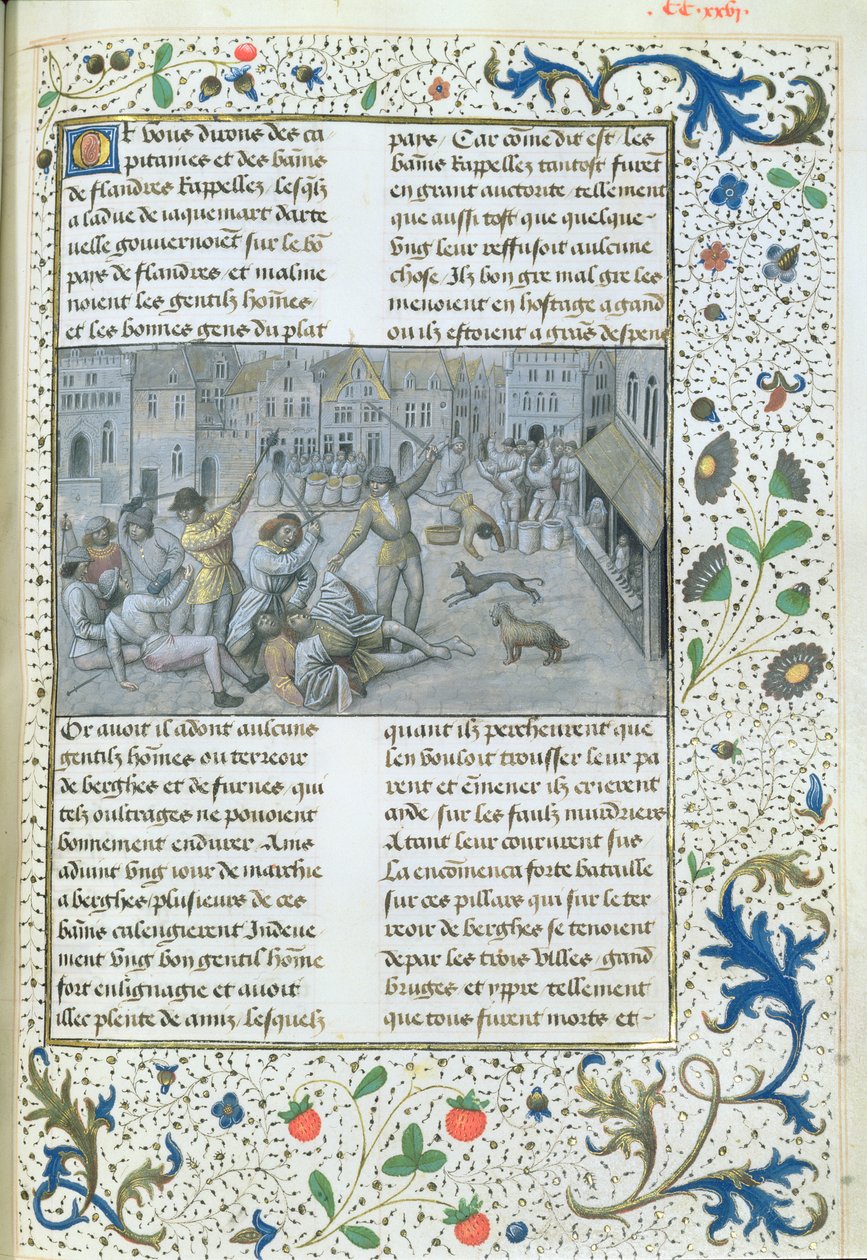 .CC.xxvi.
Or vous dirons des ca
pitaines et des bañis
de flandres Rappellez / lesqlz
a ladue de iaquemart darte
uelle gouuernoiẽt sur le bõ
pays de flandres / et malme
noient les gentilz hom̃es /
et les bonnes gens du plat
pays / Car cõme dit est / les
bañis Rappellez tantost furẽt
en grant auctorite / tellement
que aussi tost que quelque-
vng leur reffusoit aulcune
chose / Ilz bon gre mal gre les
menoient en hostage a gand
ou ilz estoient a grãs despens
Or auoit il adont aulcuns
gentilz hom̃es ou terreoir
de berghes et de furnes / qui
telz oultrages ne pouoient
bonnement endurer / Ains
aduint vng iour de marchie
a berghes / plusieurs de ces
bañis calengierent Indeue-
ment vng bon gentil hom̃e
fort enlignagie et auoit
illec plente de amiz / lesquelz
quant ilz percheurent que
len vouloit trousser leur pa
rent et em̃ener ilz crierent
aide / sur les faulx murdriers
Atant leur coururent sus /
La encõmenca forte bataille
sur ces pillars qui sur le ter-
reoir de berghes se tenoient
depar les trois villes / gand
Bruges et yppre / tellement
que tous furent mors et -